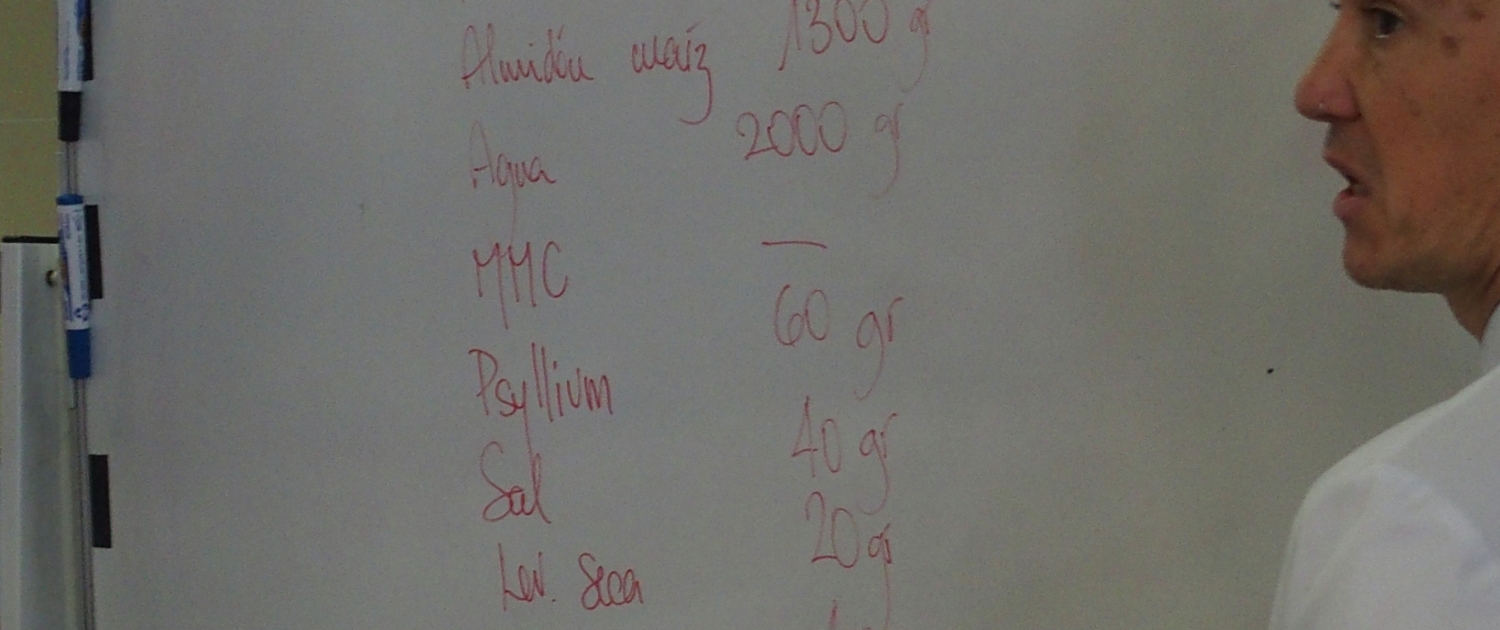 Almidón maíz 1300 gr
Agua 2000 gr
MMC —
Psyllium 60 gr
Sal 40 gr
Lev. Seca 20 gr